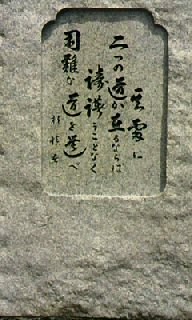 其處に
二つの道が在るならば
躊躇うことなく
困難な道を選べ